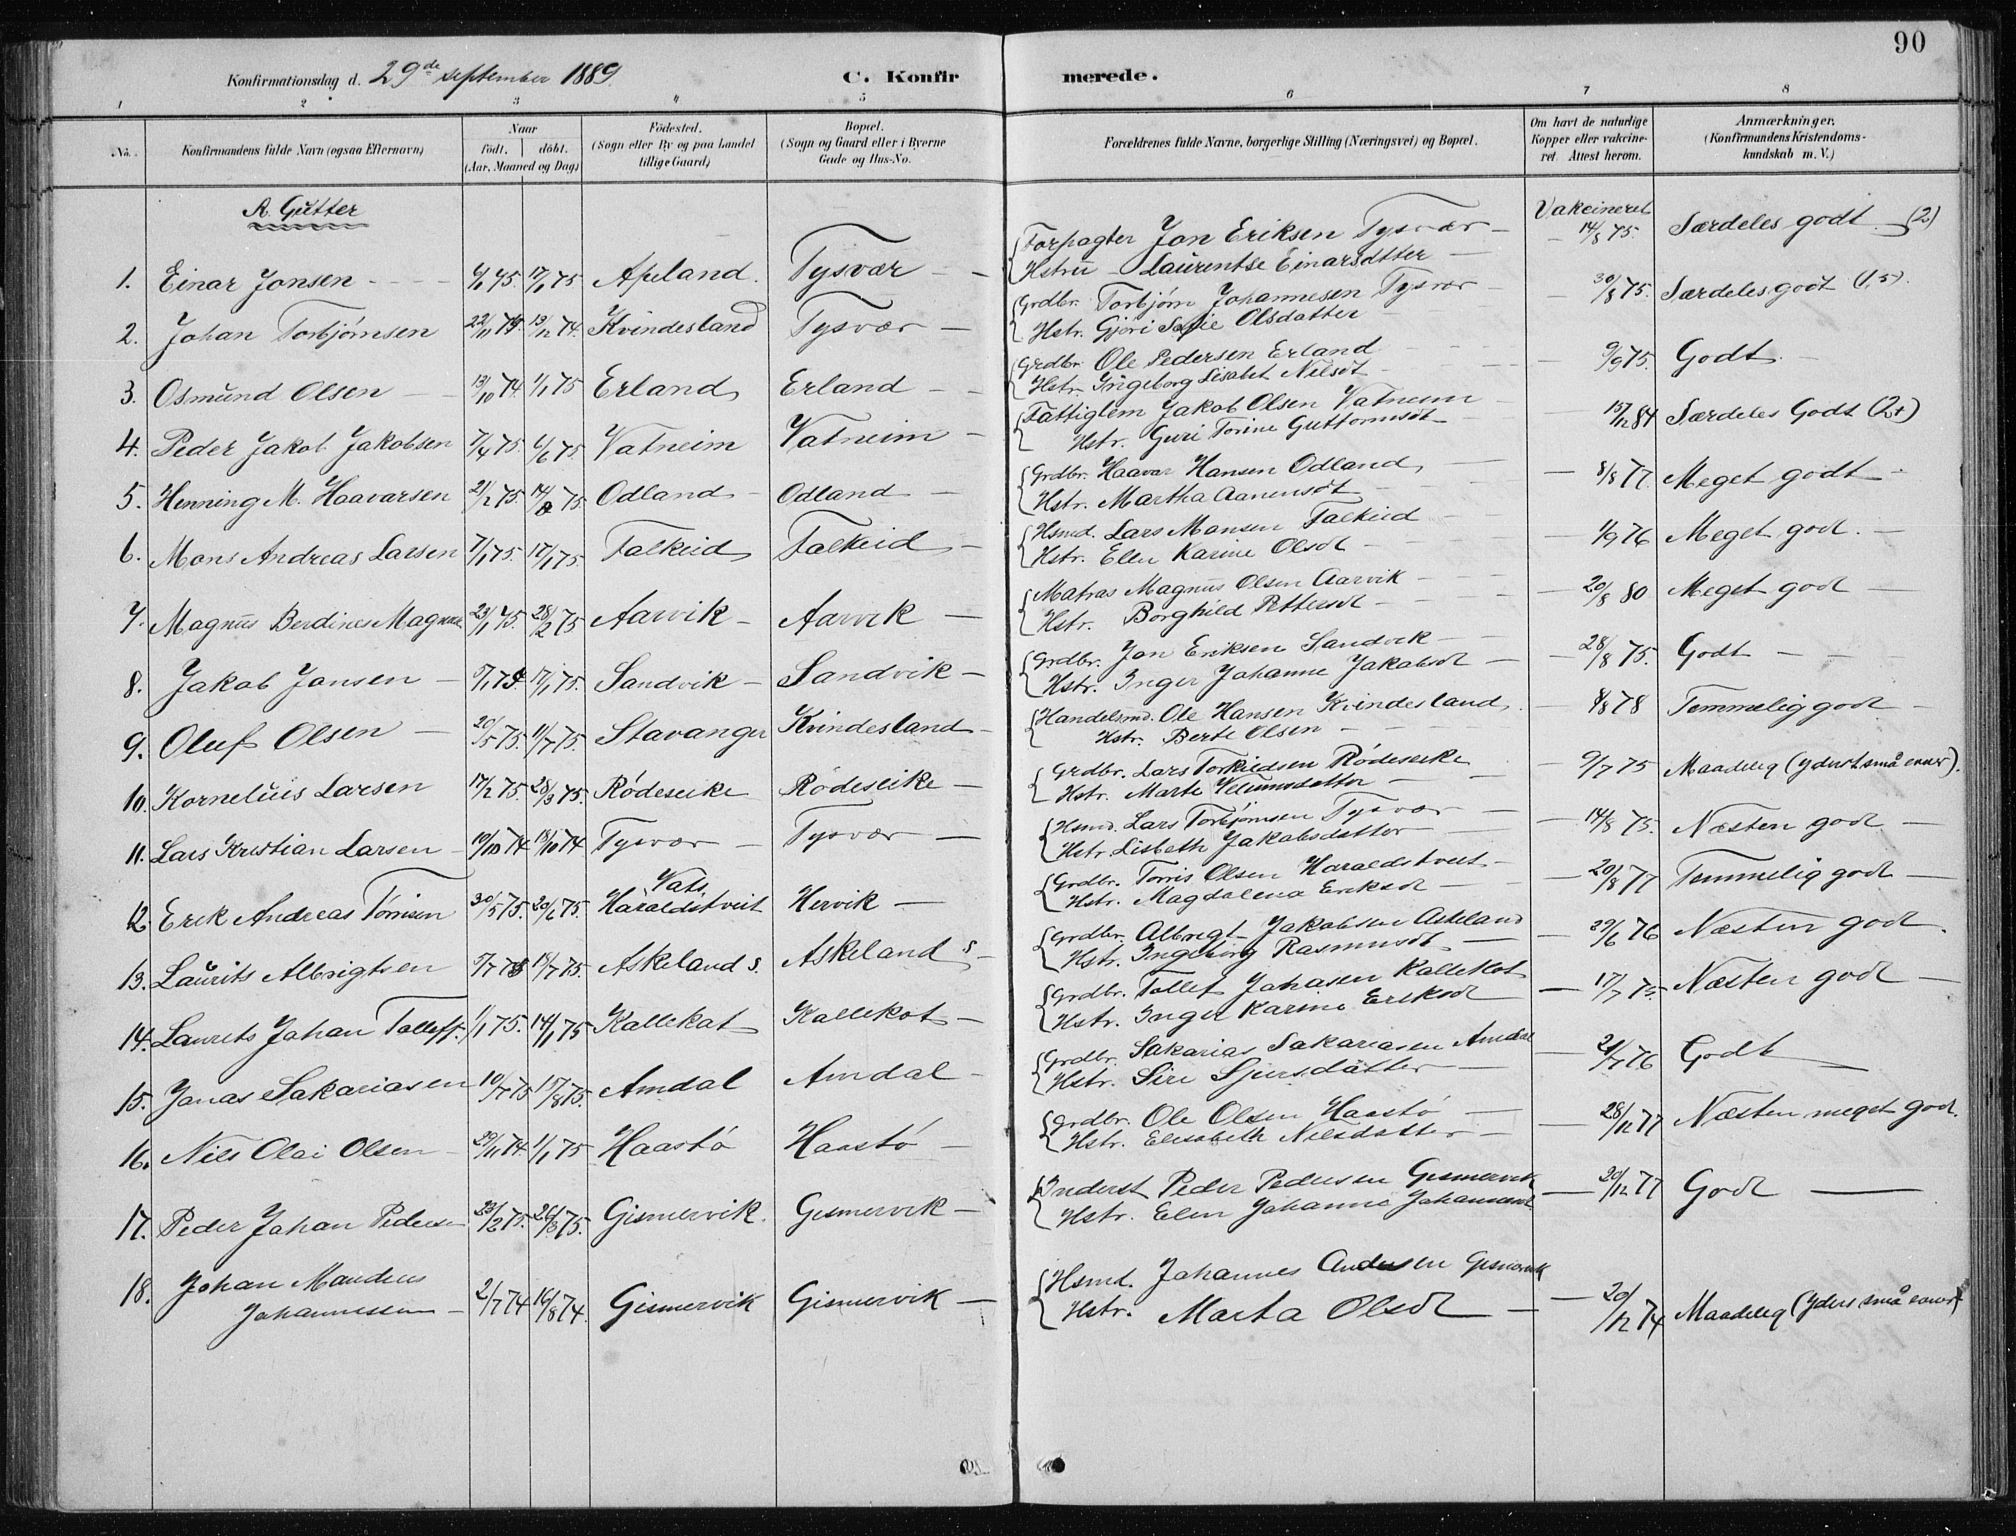 90
Konfirmationsdag d. 29de september 1889. C. Konfirmerede.
1 2 3 4 5 6 7 8
No. Konfirmandens fulde Navn (ogsaa Efternavn) Naar födt. döbt. (Aar, Maaned og Dag) Födested. (Sogn eller By og paa Landet tillige Gaard) Bopæl. (Sogn og Gaard eller i Byerne Gade og Hus-No. Forældrenes fulde Navne, borgerlige Stilling (Næringsvei) og Bopæl. Om havt de naturlige Kopper eller vakcineret. Attest herom. Anmærkninger. (Konfirmandens Kristendomskundskab m. V.)
A. Gutter
Vakcineret
1. Einar Jonsen 17/1 75 Apeland. Tysvær Forpagter Jon Eriksen Tysvær 14/8 75. Særdeles godt (2)
Hstru Laurentse Einarsdtter
2. Johan Torbjørnsen 22/11 74 13/12 74. Kvindesland Tysvær Grdbr. Torbjørn Johannesen Tysvær 30/8 75. Særdeles godt (1,5).
Hstr. Gjøri Sofie Olsdatter
3. Osmund Olsen 13/10 74. 1/1 75 Erland Erland Grdbr. Ole Pedersen Erland 9/9 75. Godt.
Hstr. Ingeborg Lisabet Nilsdt
4. Peder Jakob Jakobsen 7/4 75. 6/6 75. Vatneim Vatneim Fattiglem Jakob Olsen Vatneim 15/12 84 Særdeles Godt (2+)
Hstr. Guri Torine Guttormsdt
5. Henning M. Haavarsen 21/2 75. 14/ 75. Odland Odland Grdbr. Haavar Hansen Odland 8/8 77. Meget godt
Hstr. Martha Aanensdt
6. Mons Andreas Larsen 7/1 75. 17/1 75. Falkeid Falkeid Hsmd. Lars Monsen Falkeid 1/9 76 Meget god.
Hstr. Elen Karine Olsdt
7. Magnus Berdines Magnus. 23/1 75. 28/2 75 Aarvik Aarvik Matros Magnus Olsen Aarvik 20/8 80 Meget god
Hstr. Borghild Pettersdt
8. Jakob Jonsen 17/1 75. Sandvik Sandvik Grdbr. Jon Eriksen Sandvik 28/8 75. Godt
Hstr. Inger Johanne Jakobsdt
9. Oluf Olsen 20/5 75. 11/7 75. Stavanger Kvindesland Handelsmd. Ole Hansen Kvindesland 8/8 78 Temmelig god
Hstr. Berte Olsen
10. Kornelius Larsen 17/2 75. 28/3 75. Rödeseike Rödeseike Grdbr. Lars Torkildsen Rödeseike 9/7 75 Maadelig (yderst små evner).
Hstr. Marte
11. Lars Kristian Larsen 10/10 74 18/10 74 Tysvær Tysvær Hsmd. Lars Torbjørnsen Tysvær 14/8 75. Næsten god
Hstr. Lisbeth Jakobsdatter
12. Erik Andreas Torrisen 30/5 75. 20/6 75. Vats Haraldstveit Hervik Grdbr. Torris Olsen Haraldstveit 20/8 77 Temmelig god
Hstr. Magdalena Eriksdt
13. Laurits Albrigtsen 18/7 75. Askeland s. Askeland s. Grdbr. Albregt Jakobsen Askeland 29/6 76 Næsten god.
Hstr. Ingeborg Rasmusdt
14. Laurits Johan Tolleff. 1/1 75. 14/1 75 Kallekot Kallekot Grdbr. Tollef Johasen Kallekot 17/7 75. Næsten god
Hstr. Inger Karine Eriksdt
15. Jonas Sakariasen 10/7 75 15/8 75. Amdal Amdal Grdbr. Sakarias Sakariasen Amdal 21/7 76 Godt
Hstr. Siri Sjursdatter
16. Nils Olai Olsen 29/11 74. 1/1 75 Haastö Haastö Grdbr. Ole Olsen Haastö 28/12 77 Næsten meget god.
Hstr. Elisabeth Nilsdatter
17. Peder Johan Pedersen 23/2 75. 26/3 75. Gismervik. Gismervik Inderst Peder Pedersen Gismervik 20/12 77 God
Hstr. Elen Johanne Johannesdt
18. Johan Mandeus Johannessen 2/7 74 16/8 74. Gismervik Gismervik Hsmd. Johannes Andersen Gismervik 20/12 74 Maadelig (yderst små evner)
Hstr. Marta Olsdt